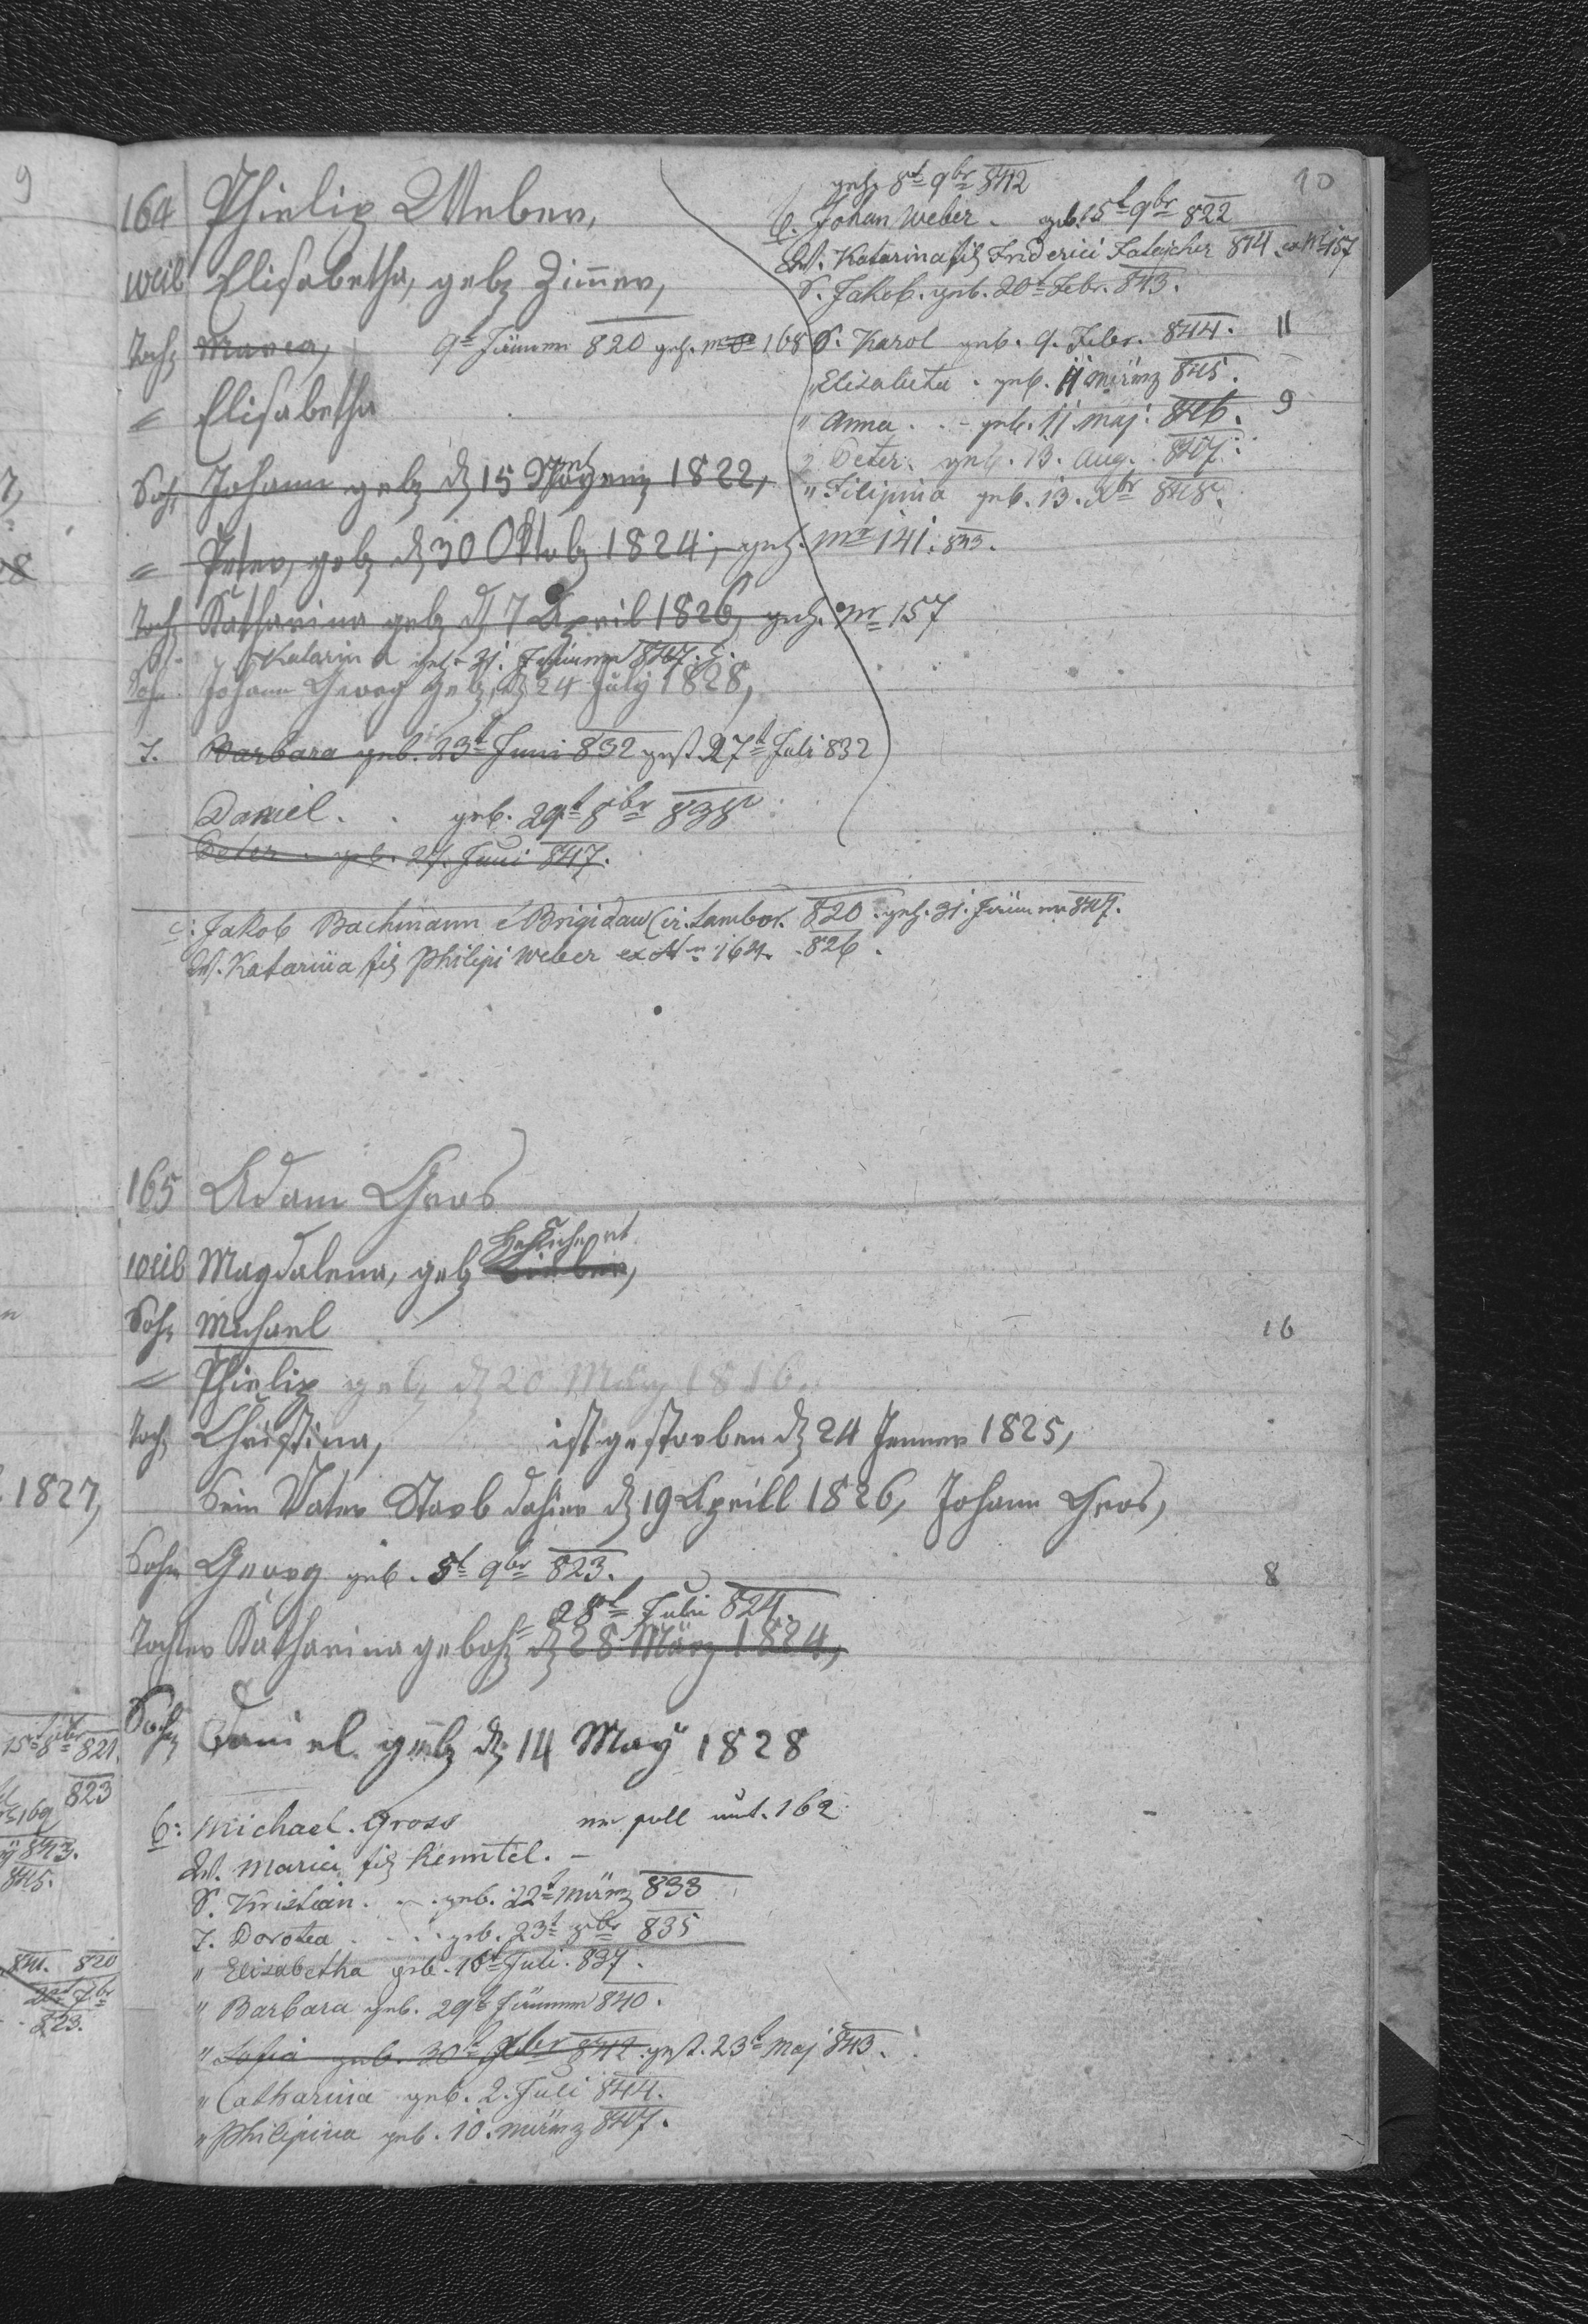 10
164 Phielip Weber,
weib Elisabetha, geb Zimer,
Toch Maria, 9t Jänner 820 geh. 168
" Elisabetha
Soh Johann geb d 15 1822,
" Peter, geb d 30 Oktob 1824, geh. Nr 141. 833.
Toch Katharina geb d 7 April 1826, geh. Nr 157
Katarina geh. 31. Jänner 847.
Sohn Johann Georg geb, d 24 July 1828,
T. Barbara geb. 23t Juni 832 gest 27t Juli 832
Daniel. geb. 29t 8br 838
Peter geb. 27. Juni 847.
geh. 8t 9br 842
b. Johan Weber. geb. 15t 9br 822
W. Katarina fil Friderici 824. ex Nr 157
S. Jakob. geb. 20t Febr. 843.
S. Karol geb. 9. Febr. 844. 11
" Elisabeta. geb. 11 März 845.
" Anna. geb. 11 Maj. 846. 9
" Peter. geb. 13. Aug. 847.
" Filipina geb. 13. Xbr 848.
c: Jakob Bachmann e Brigidau Cir. Sambor. 820. geh. 31. Jänner 847.
W. Katarina fil Philipi Weber ex Nr 164. 826.
165 Adam Gros
weib Magdalena, geb
Soh Michael 16
" Phielip geb d 20 May 1816.
Toch Christina, ist gestorben d 24 Jenner 1825,
Sein Vater Starb dahier d 19 Aprill 1826, Johann Gros,
Sohn Georg geb. 5t 9br 823. 8
28t Juli 824.
Tochter Katharina geboh d 28 März 1824,
Soh Daniel geb d 14 May 1828
b: Michael. Gross 162
W. Maria fil Kenntel.
S. Kristian. geb. 22t März 833
T. Dorotea. geb. 23t 835
" Elisabetha geb. 16t Juli. 837.
" Barbara geb. 29t Jänner 840.
" Sofia geb. 30t Xbr 842. gest. 23t Maj 843.
" Catharina geb. 2. Juli 844.
" Philipina geb. 10. März 847.
9
1827,
821.
823
169
843.
845.
841. 820
823.